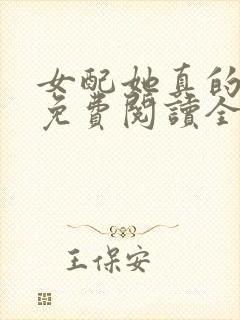 女配她真的
免費閱讀全
王保安